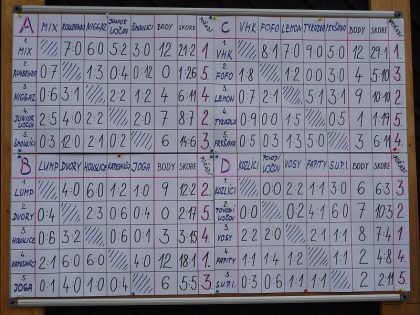 A MIX NIGGAZ JUNIOR BODY SKORE POŘADÍ
1. MIX 7:0 6:0 5:2 3:0 12 21:2 1.
2. 0:7 1:3 0:4 0:12 0 1:26 5.
3. NIGGAZ 0:6 3:1 2:2 1:2 4 6:11 4.
4. JUNIOR 2:5 4:0 2:2 2:0 7 8:7 2.
5. 0:3 12:0 2:1 0:2 6 14:6 3.
C VHK FOFO LEMON BODY SKORE POŘADÍ
1. VHK 8:1 7:0 9:0 5:0 12 29:1 1.
2. FOFO 1:8 1:2 0:0 3:0 4 5:10 3.
3. LEMON 0:7 2:1 5:1 3:1 9 10:10 2.
4. 0:9 0:0 1:5 0:5 1 1:19 5.
5. 0:5 0:3 1:3 5:0 3 4.
B LUMP DVORY HOUSLICE JOGA BODY SKORE POŘADÍ
1. LUMP 4:0 6:0 1:2 1:0 9 12:2 2.
2. DVORY 0:4 2:3 0:6 0:4 0 2:17 5.
3. HOUSLICE 0:6 3:2 0:6 0:1 3 3:15 4.
4. 2:1 6:0 6:0 4:0 12 18:1 1.
5. JOGA 0:1 4:0 1:0 0:4 6 5:5 3.
D KOZLÍCI VOSY PAPITY S.U.P.I. BODY SKORE POŘADÍ
1. KOZLÍCI 0:0 2:2 1:1 3:0 6 6:3 3.
2. 0:0 0:2 4:1 6:0 7 10:3 2.
3. VOSY 2:2 2:0 2:1 1:1 8 7:4 1.
4. PAPITY 1:1 1:4 1:2 1:1 2 4:8 4.
5. S.U.P.I. 0:3 0:6 1:1 1:1 2 2:11 5.